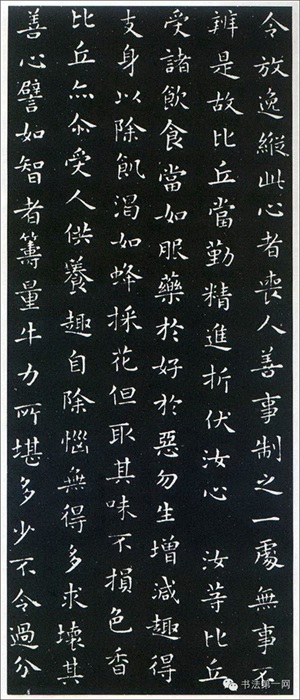 令放逸縱此心者喪人善事制之一處無事不
辨是故比丘當勤精進折伏汝心 汝等比丘
受諸飲食當如服藥於好於惡勿生增減趣得
支身以除飢渴如蜂採花但取其味不損色香
比丘亦尒受人供養趣自除惱無得多求壞其
善心譬如智者籌量牛力所堪多少不令過分
书法第一网